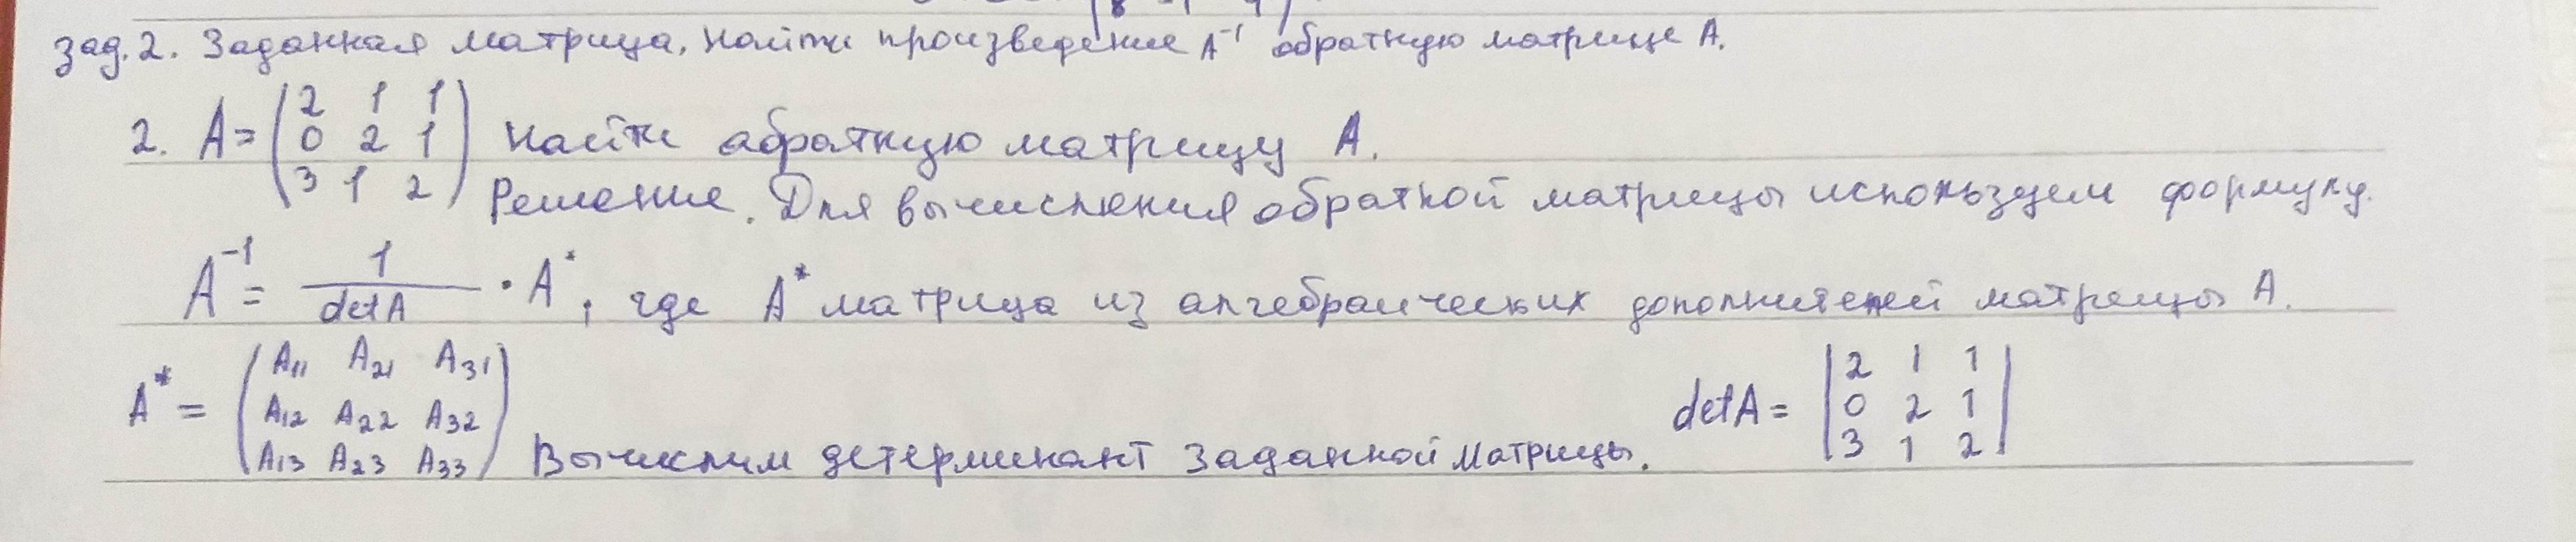 зад. 2. Заданная матрица, найти произведение A⁻¹ обратную матрице A.
2. A = (2 1 1
0 2 1
3 1 2) найти абратную матрицу A.
Решение. Для вычисления обратной матрицы используем формулу.
A⁻¹ = 1/detA · A*, где A* матрица из алгебраических дополнителей матрицы A.
A* = (A₁₁ A₂₁ A₃₁
A₁₂ A₂₂ A₃₂
A₁₃ A₂₃ A₃₃) Вычислим детерминант заданной матрицы. detA = |2 1 1
0 2 1
3 1 2|